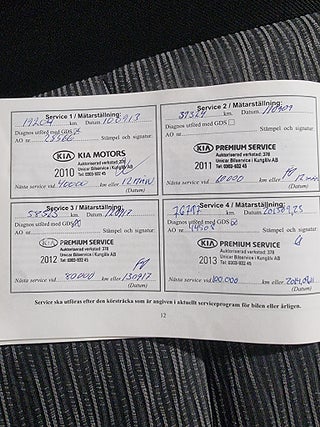 Service 1 / Mätarställning:
19204 km. Datum
Diagnos utförd med GDS
AO nr Stämpel och signatur.
KIA KIA MOTORS
Auktoriserad verkstad: 378
2010 Unicar Bilservice i Kungälv AB
Tel: 0303-932 45
Nästa service vid 40000 km eller 12 mån
(Datum)
Service 2 / Mätarställning:
km. Datum
Diagnos utförd med GDS
AO nr Stämpel och signatur.
KIA PREMIUM SERVICE
Auktoriserad verkstad: 378
2011 Unicar Bilservice i Kungälv AB
Tel: 0303-932 45
Nästa service vid 60000 km eller 12 mån
(Datum)
Service 3 / Mätarställning:
km. Datum
Diagnos utförd med GDS
AO nr Stämpel och signatur.
KIA PREMIUM SERVICE
Auktoriserad verkstad: 378
2012 Unicar Bilservice i Kungälv AB
Tel: 0303-932 45
Nästa service vid 80000 km eller 130917
(Datum)
Service 4 / Mätarställning:
km. Datum
Diagnos utförd med GDS
AO nr 44508 Stämpel och signatur.
KIA PREMIUM SERVICE
Auktoriserad verkstad: 378
2013 Unicar Bilservice i Kungälv AB
Tel: 0303-932 45
Nästa service vid 100.000 km eller
(Datum)
Service ska utföras efter den körsträcka som är angiven i aktuellt serviceprogram för bilen eller årligen.
12